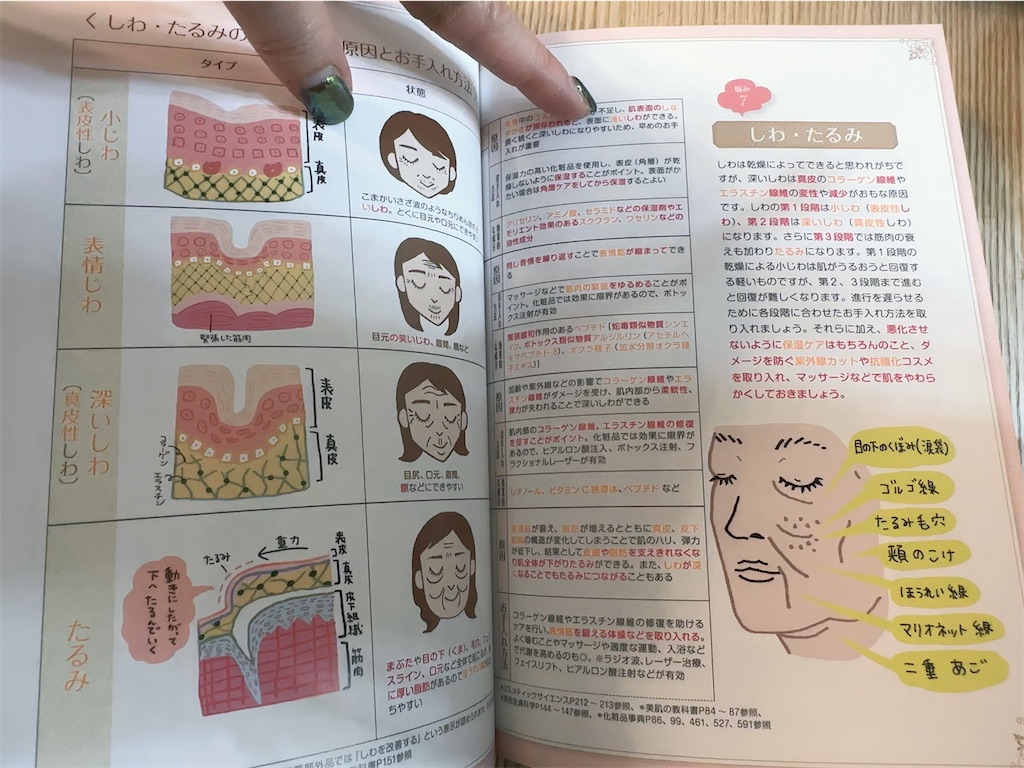 くしわ・たるみの
原因とお手入れ方法
タイプ
状態
小じわ
(表皮性しわ)
表皮
真皮
こまかいさざ波のような
いしわ。とくに目元や口元にできやすい
不足し、肌表面のしな
表面に浅いしわができる。
長く続くと深いしわになりやすいため、早めのお手
入れが重要
保湿力の高い化粧品を使用し、表皮(角層)が乾
燥しないように保湿することがポイント。表面がか
たい場合は角層ケアをしてから保湿するとよい
グリセリン、アミノ酸、セラミドなどの保湿剤やエ
モリエント効果のあるスクワラン、ワセリンなどの
油性成分
表情じわ
緊張した筋肉
目元の笑いじわ、眉間、額など
原因
同じ表情を繰り返すことで表情筋が縮まってでき
る
マッサージなどで筋肉の緊張をゆるめることがポ
イント。化粧品では効果に限界があるので、ボトッ
クス注射が有効
緊張緩和作用のあるペプチド[蛇毒類似物質シンエ
イク、ボトックス類似物質アルジルリン(アセチルヘ
キサペプチド-8)、オクラ種子(加水分解オクラ種
子エキス)]
深いしわ
(真皮性しわ)
表皮
真皮
コラーゲン
エラスチン
目尻、口元、眉間、
額などにできやすい
原因
加齢や紫外線などの影響でコラーゲン線維やエラ
スチン線維がダメージを受け、肌内部から柔軟性、
弾力が失われることで深いしわができる
肌内部のコラーゲン線維、エラスチン線維の修復
を促すことがポイント。化粧品では効果に限界が
あるので、ヒアルロン酸注入、ボトックス注射、フ
ラクショナルレーザーが有効
レチノール、ビタミンC誘導体、ペプチド など
たるみ
動きにしたがって
下へたるんでいく
たるみ
重力
表皮
真皮
皮下組織
筋肉
まぶたや目の下(くま)、毛穴、フェ
スライン、口元など全体で起こる。
に厚い脂肪があるので
ちやすい
表情筋が衰え、脂肪が増えるとともに真皮、皮下
組織の構造が変化してしまうことで肌のハリ、弾力
が低下し、結果として皮膚や脂肪を支えきれなくな
り肌全体が下がりたるみができる。また、しわが深
くなることでもたるみにつながることもある
お手入れ方法
コラーゲン線維やエラスチン線維の修復を助ける
ケアを行い、表情筋を鍛える体操などを取り入れる。
よく噛むことやマッサージや適度な運動、入浴など
で代謝を高めるのも◎。※ラジオ波、レーザー治療、
フェイスリフト、ヒアルロン酸注射などが有効
*コスメティックサイエンスP212〜213参照、*美肌の教科書P84〜87参照、
P144〜147参照、*化粧品事典P86、99、461、527、591参照
部外品では「しわを改善する」という表示が認められ
科書P151参照
悩み
7
しわ・たるみ
しわは乾燥によってできると思われがちで
すが、深いしわは真皮のコラーゲン線維や
エラスチン線維の変性や減少がおもな原因
です。しわの第1段階は小じわ(表皮性し
わ)、第2段階では深いしわ(真皮性しわ)
になります。さらに第3段階では筋肉の衰
えも加わりたるみになります。第1段階の
乾燥による小じわは肌がうるおうと回復す
る軽いものですが、第2、3段階まで進む
と回復が難しくなります。進行を遅らせる
ために各段階に合わせたお手入れ方法を取
り入れましょう。それらに加え、悪化させ
ないように保湿ケアはもちろんのこと、ダ
メージを防ぐ紫外線カットや抗酸化コスメ
を取り入れ、マッサージなどで肌をやわら
かくしておきましょう。
目の下のくぼみ(涙袋)
ゴルゴ線
たるみ毛穴
頬のこけ
ほうれい線
マリオネット線
二重あご